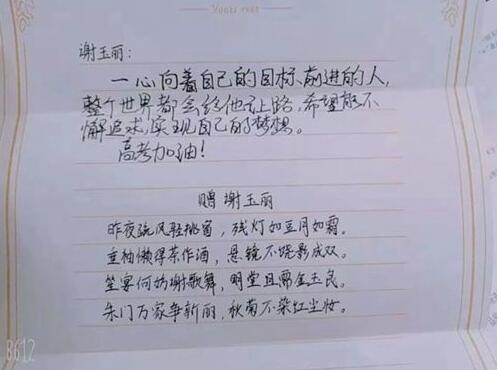 谢玉丽:
一心向着自己的目标前进的人,
整个世界都会给他让路,希望能不
懈追求,实现自己的梦想。
高考加油!
赠 谢玉丽
昨夜疏风轻挑窗,残灯如豆月如霜。
重柚懒得茶作酒,悬镜不饶影成双。
笙宴何妨谢歌舞,明堂且需金玉良。
朱门万家争新丽,秋菊不染红尘妆。
8612